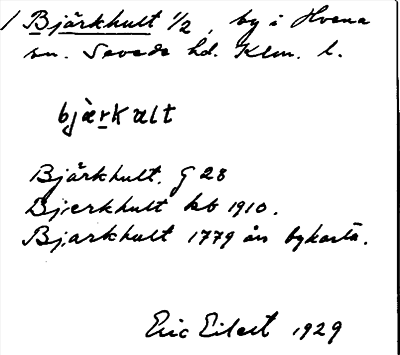 / Bjärkhult 1/2, by i Hvena
sn. Sevede hd. Klm. l.
bjàr̲kult
Bjärkhult. G 28
Bjerkhult kb 1910.
Bjarkhult 1779 års bykarta.
Eric Eilert 1929